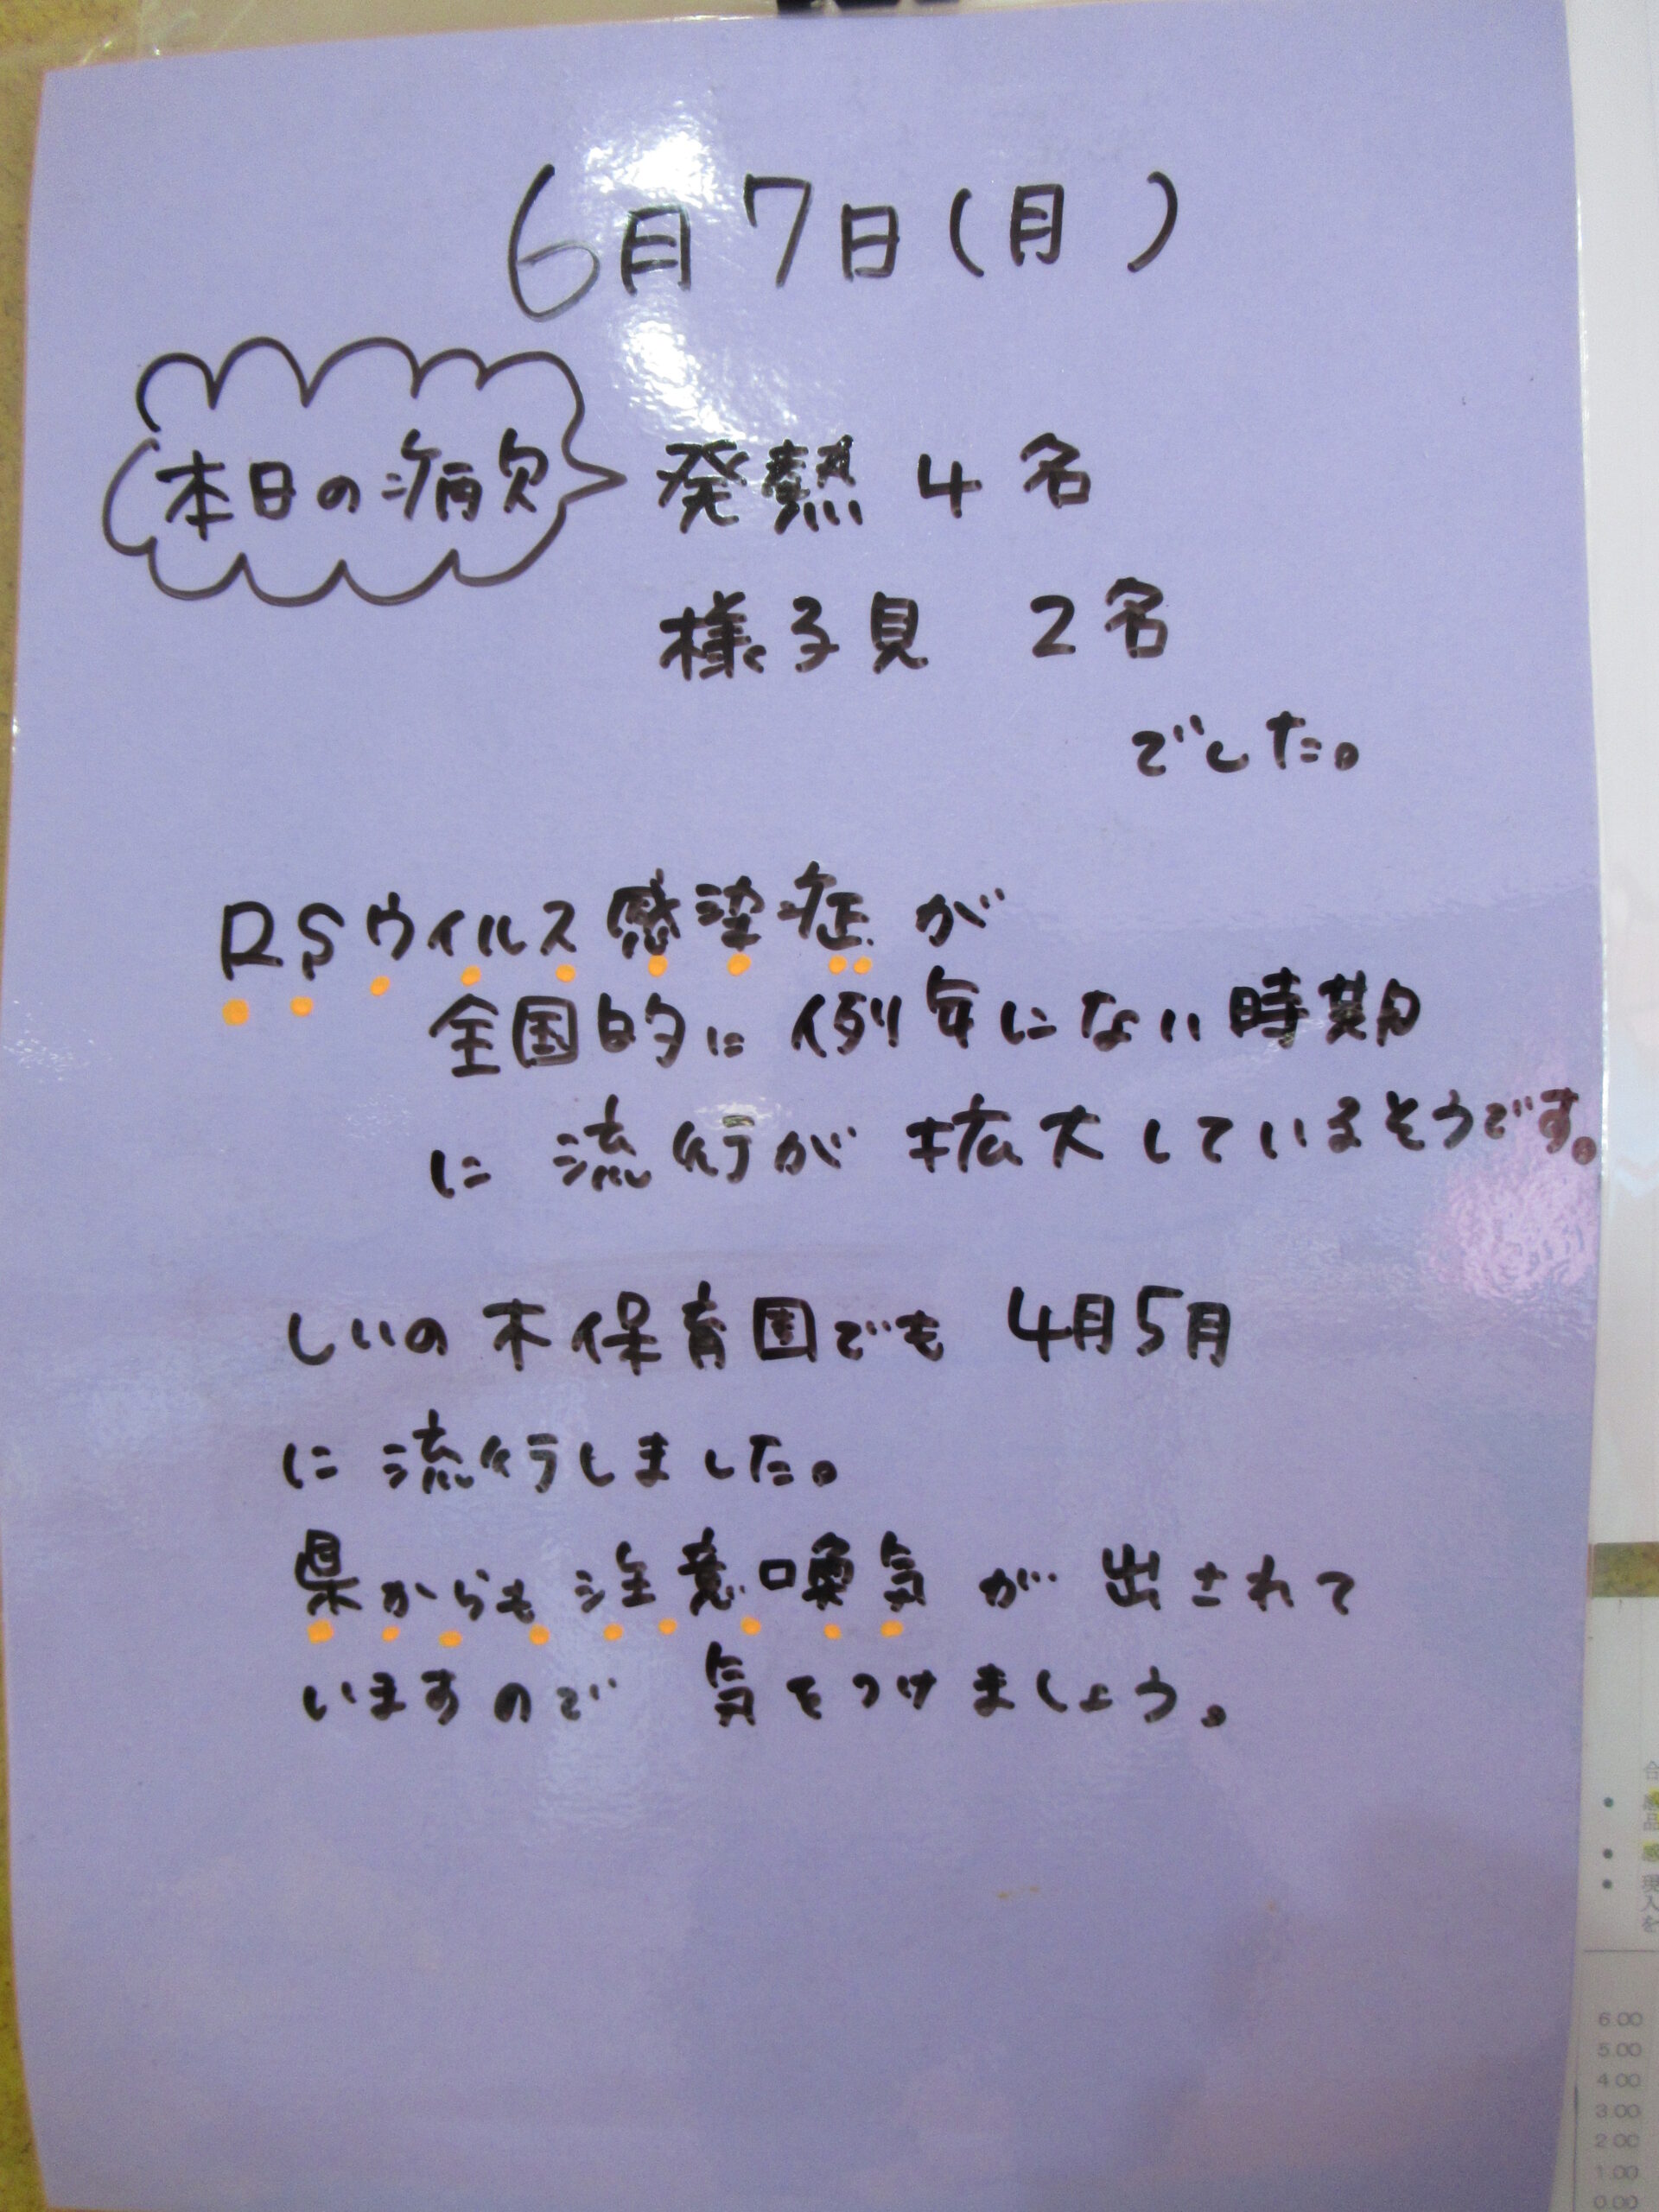 6月7日(月)
本日の病欠
発熱 4名
様子見 2名
でした。
RSウイルス感染症が
全国的に例年にない時期
に流行が拡大しているそうです。
しいの木保育園でも 4月5月
に流行しました。
県からも注意喚気が出されて
いますので 気をつけましょう。
6.00
5.00
4.00
3.00
2.00
1.00
0.00